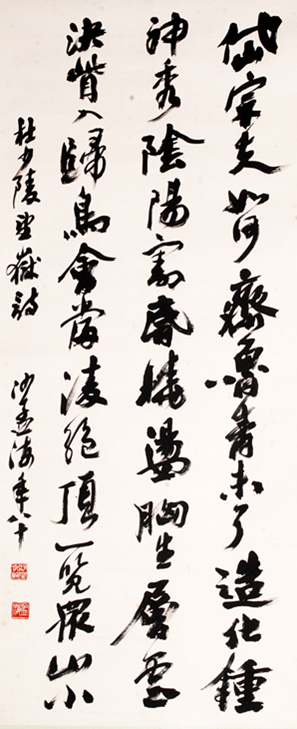 岱宗夫如何齊魯青未了造化鍾
神秀陰陽割昏曉盪胸生層雲
決眥入歸鳥會當凌絕頂一覽眾山小
杜少陵望嶽詩 沙孟海年八十